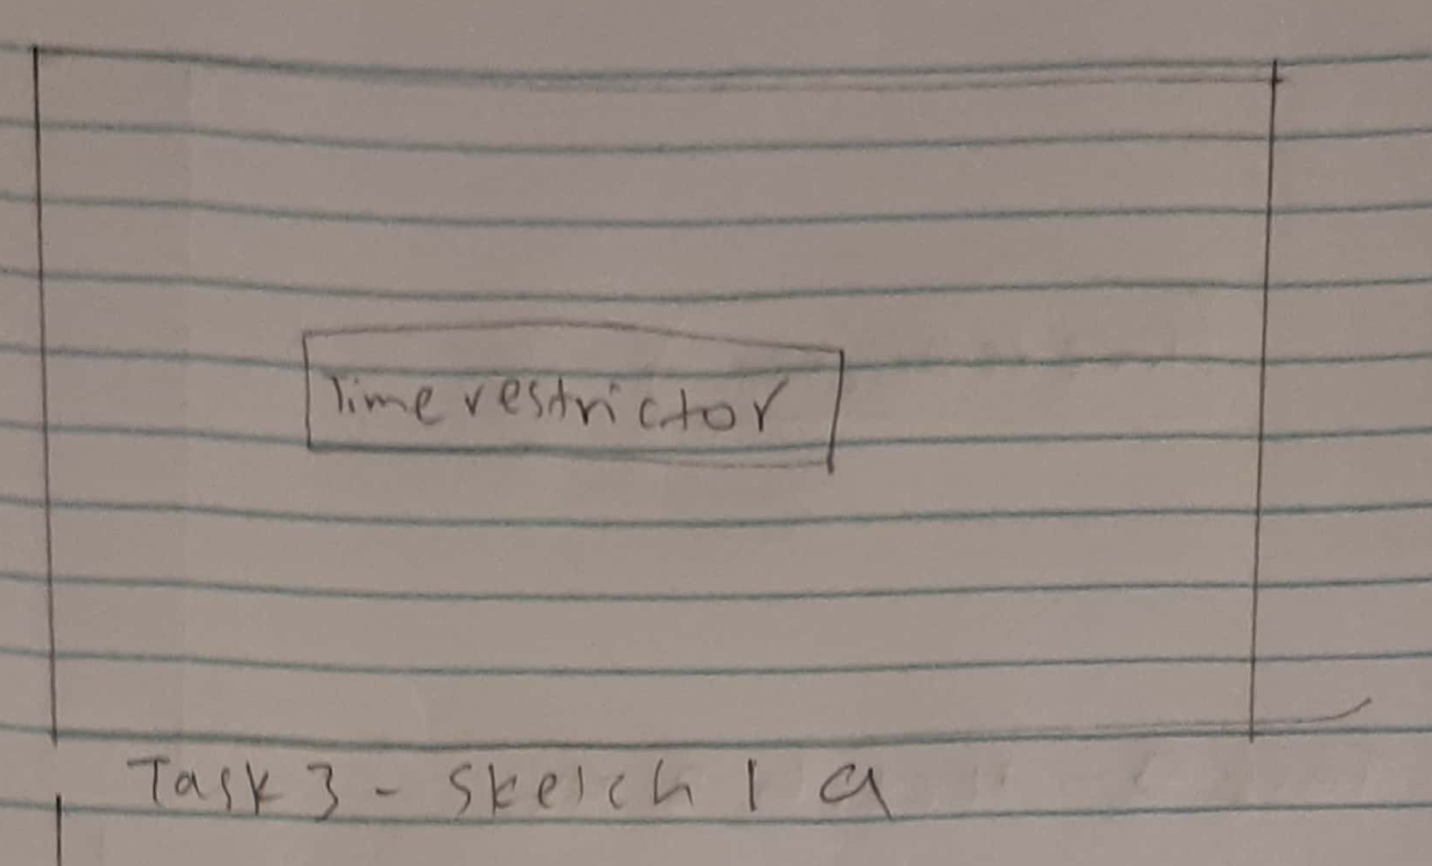 Time restrictor
Task 3 - Sketch 1 a